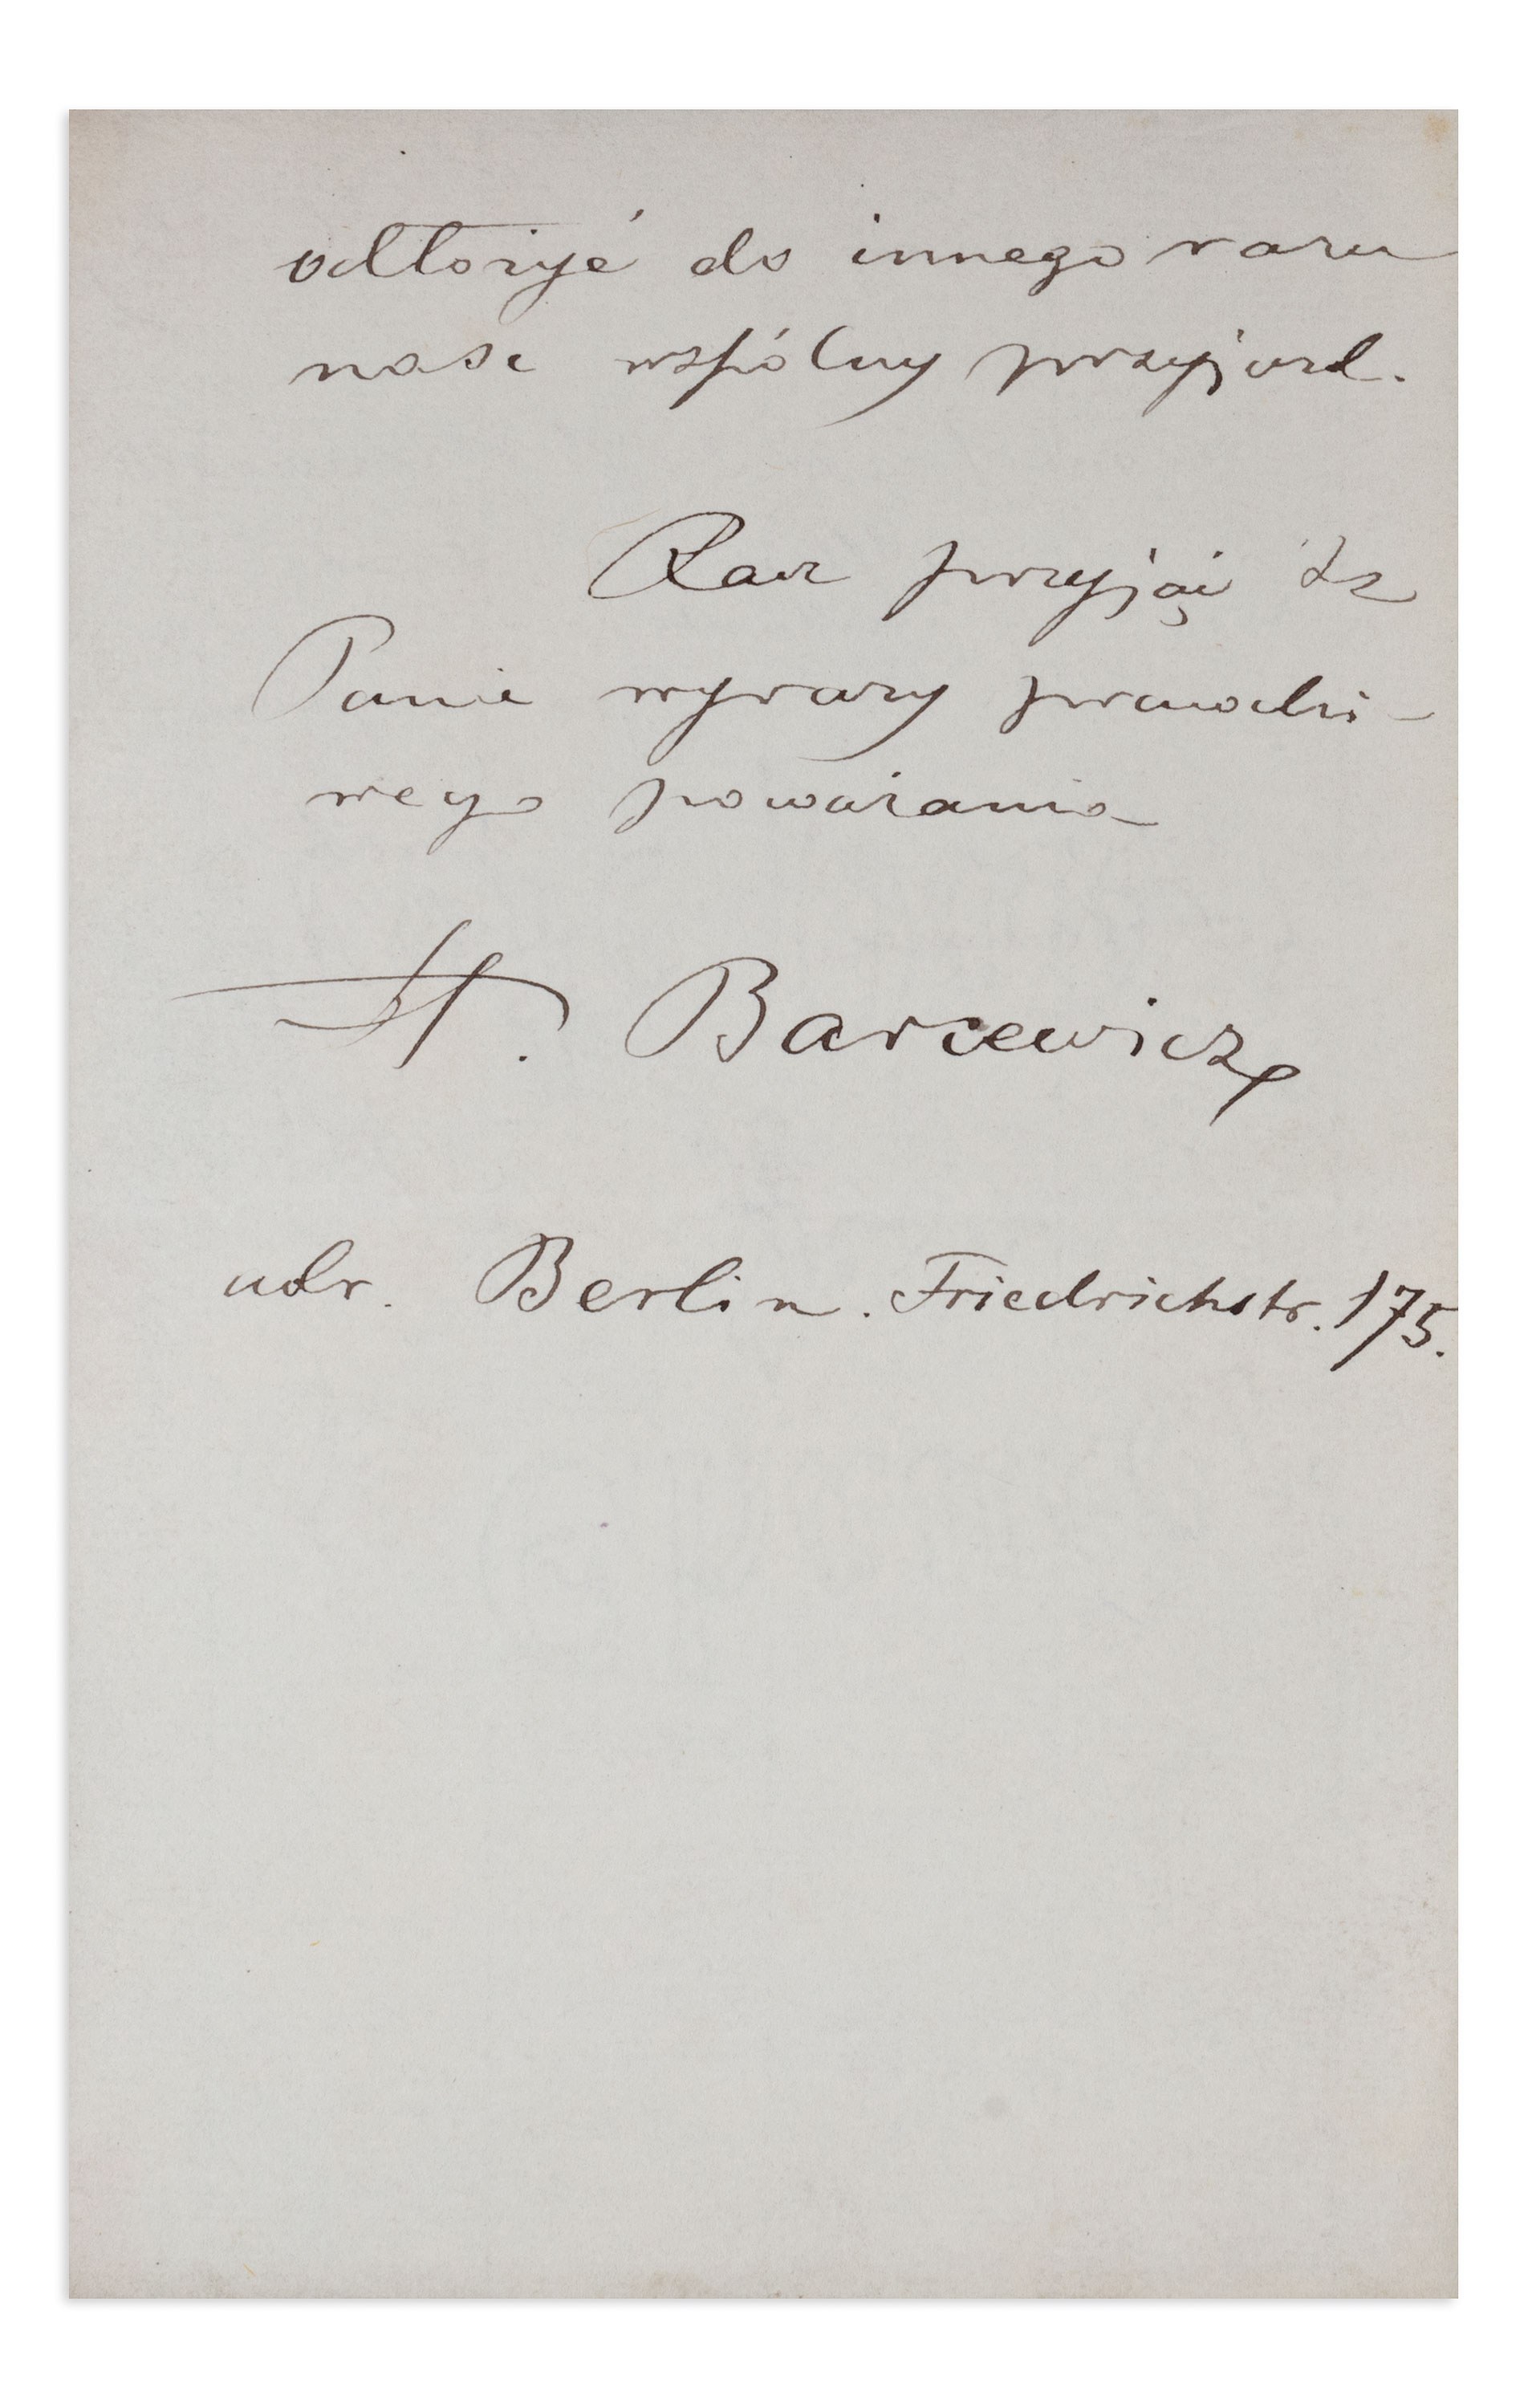 odłożyć do innego razu
nasz wspólny przyjazd.
Racz przyjąć Sz
Panie wyrazy prawdzi-
wego poważania
St. Barcewicz
adr. Berlin. Friedrichstr. 175.